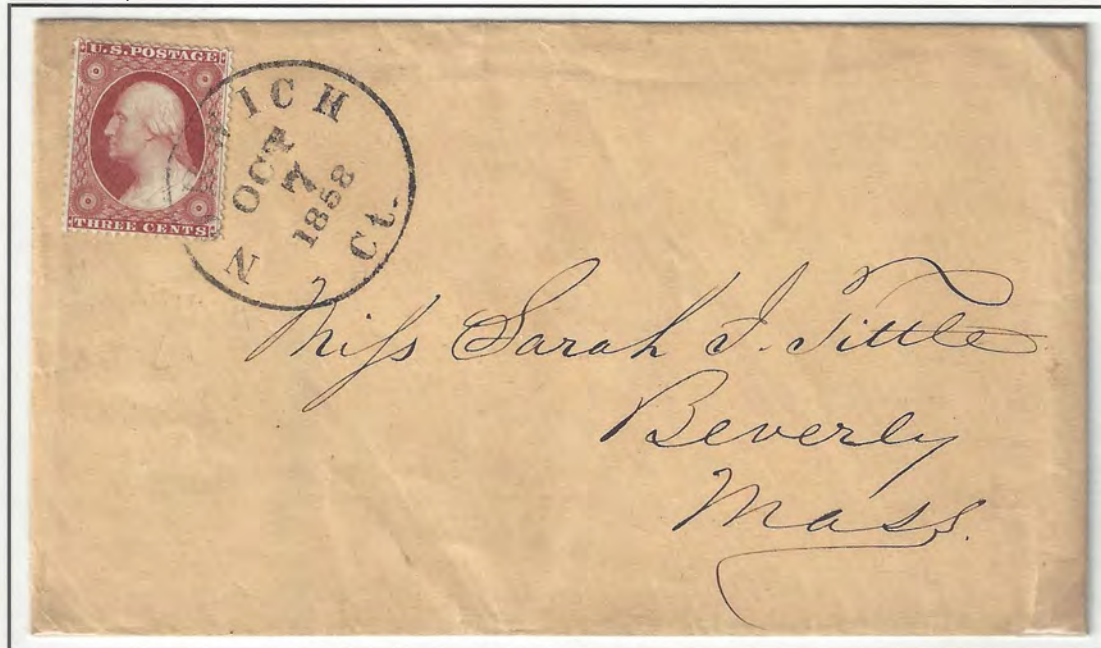 U.S. POSTAGE
THREE CENTS
N WICH
OCT
7
1858
Ct.
Miss Sarah J. Tittle
Beverly
Mass.